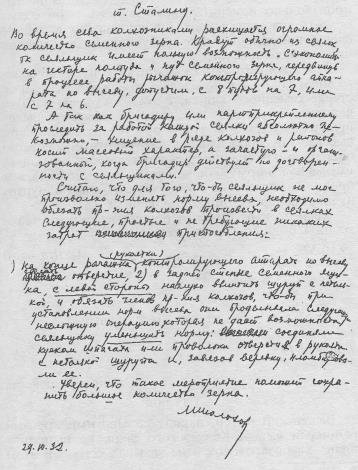 т. Сталину.
Во время сева колхозниками расхищается огромное
количество семенного зерна. Крадут обычно из сеялок
сеяльщик имеет полную возможность сэкономить
на гектаре полтора - 2 пуда семенного зерна, передвинув
в процессе работы рычажок контролирующего аппа-
рата по высеву, допустим, с 8 пудов на 7, или
с 7 на 6.
А так как бригадиру или партприкрепленному
проследить за работой каждой сеялки абсолютно не-
возможно - хищение в ряде колхозов и районов
носит массовый характер, а зачастую - и органи-
зованный, когда бригадир действует по договорен-
ности с сеяльщиками.
Считаю, что для того, что-бы сеяльщик не мог
произвольно изменять норму высева, необходимо
обязать пр-ния колхозов произвести в сеялках
следующие, простые и не требующие никаких
затрат приспособления:
(рукоятки)
1) на конце рычажка контролирующего аппарата по высеву,
отверстие 2) в задней стенке семенного ящи-
ка, с левой стороны наглухо ввинтить шуруп с петель-
кой, и обязать членов пр-ния колхозов, что-бы при
установлении норм высева они проделывали следую
несложную операцию, которая не дает возможности
сеяльщику уменьшать норму: соединяли
куском шпагата или проволоки отверстие в рукоятке
с петелкой шурупа и, завязав веревку, пломбирова-
ли ее.
Уверен, что такое мероприятие поможет сохра-
нить большое количество зерна.
М Шолохов
29.10.32